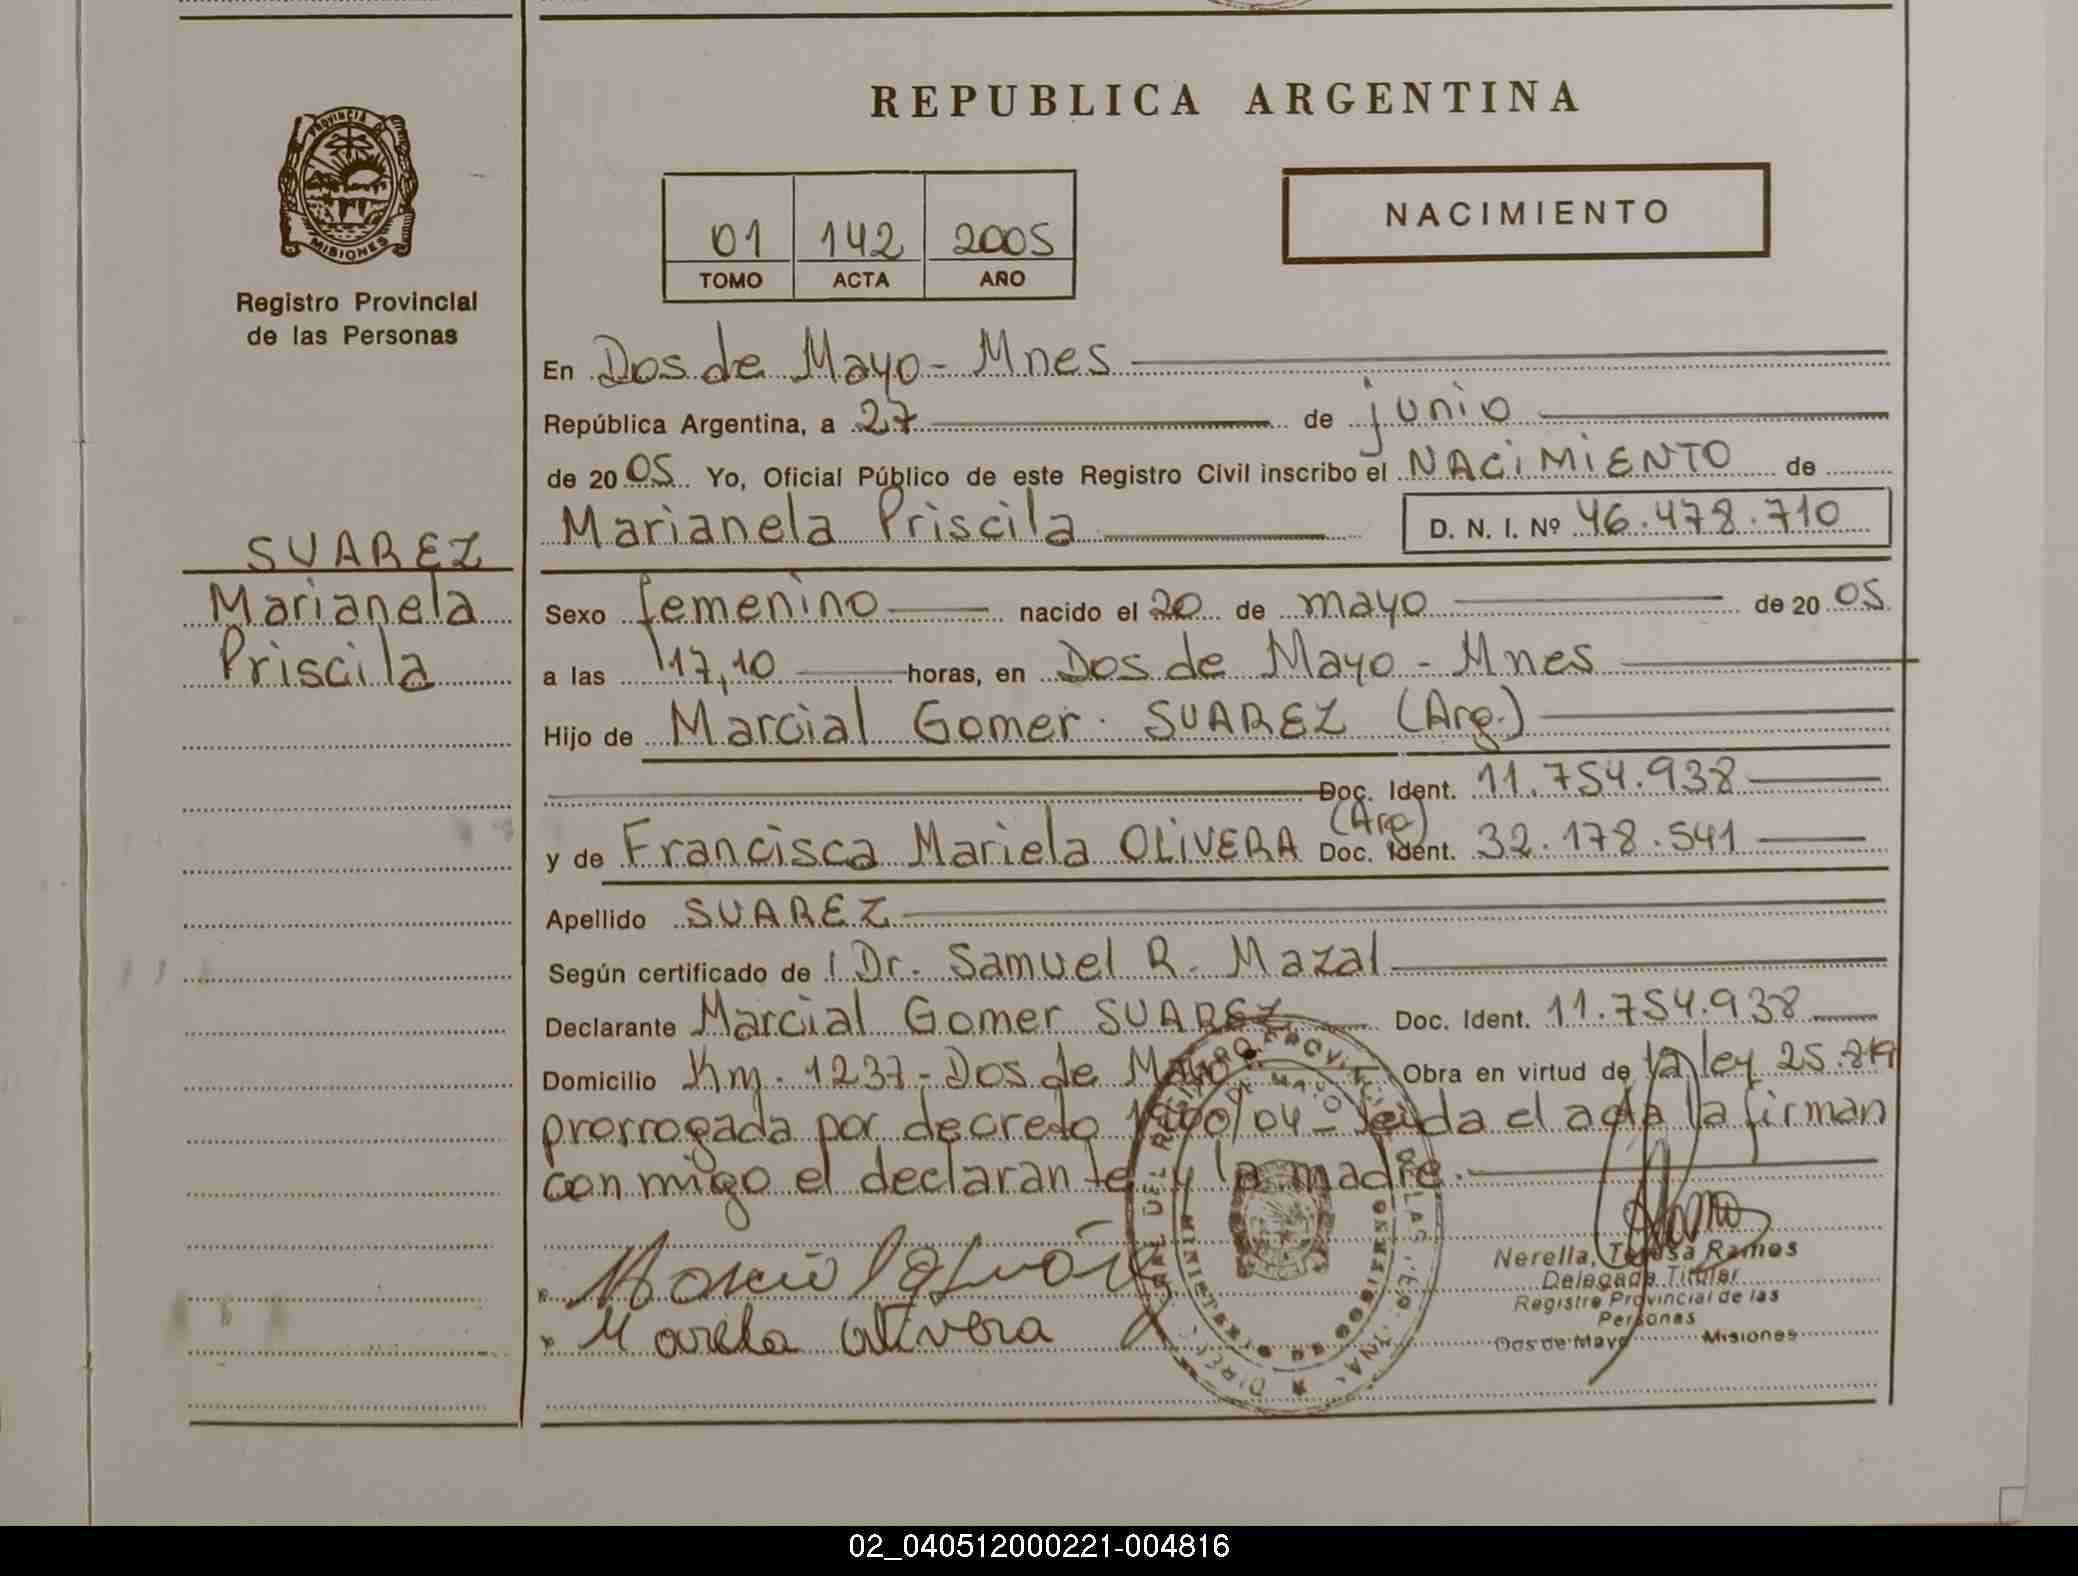 REPUBLICA ARGENTINA
PROVINCIA DE
MISIONES
Registro Provincial
de las Personas
01 142 2005
TOMO ACTA AÑO
NACIMIENTO
En Dos de Mayo - Mnes
República Argentina, a 27 de junio
de 2005 Yo, Oficial Público de este Registro Civil inscribo el NACIMIENTO de
Marianela Priscila D. N. I. Nº 46.478.710
SUAREZ
Marianela
Priscila
Sexo femenino nacido el 20 de mayo de 2005
a las 17,10 horas, en Dos de Mayo - Mnes
Hijo de Marcial Gomer SUAREZ (Arg.)
Doc. Ident. 11.754.938
(Arg)
y de Francisca Mariela OLIVERA Doc. Ident. 32.178.541
Apellido SUAREZ
Según certificado de Dr. Samuel R. Mazal
Declarante Marcial Gomer SUAREZ Doc. Ident. 11.754.938
Domicilio Km. 1237 - Dos de Mayo Obra en virtud de la ley 25.819
prorrogada por decreto /04 - Leida el acta la firman
conmigo el declarante y la madre.
Nerella, Teresa Ramos
Delegada Titular
Registro Provincial de las
Personas
Dos de Mayo Misiones
Mariela Olivera
02_040512000221-004816